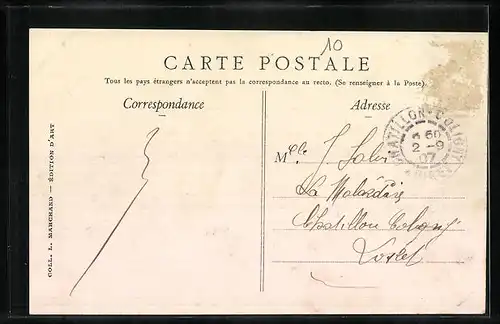 10
CARTE POSTALE
Tous les pays étrangers n'acceptent pas la correspondance au recto. (Se renseigner à la Poste).
Correspondance
Adresse
CHATILLON-COLIGNY
3 50
2 -9
07
LOIRET
Mlle J.
La
Chatillon Coligny
Loiret
COLL. L. MARCHAND — ÉDITION D'ART